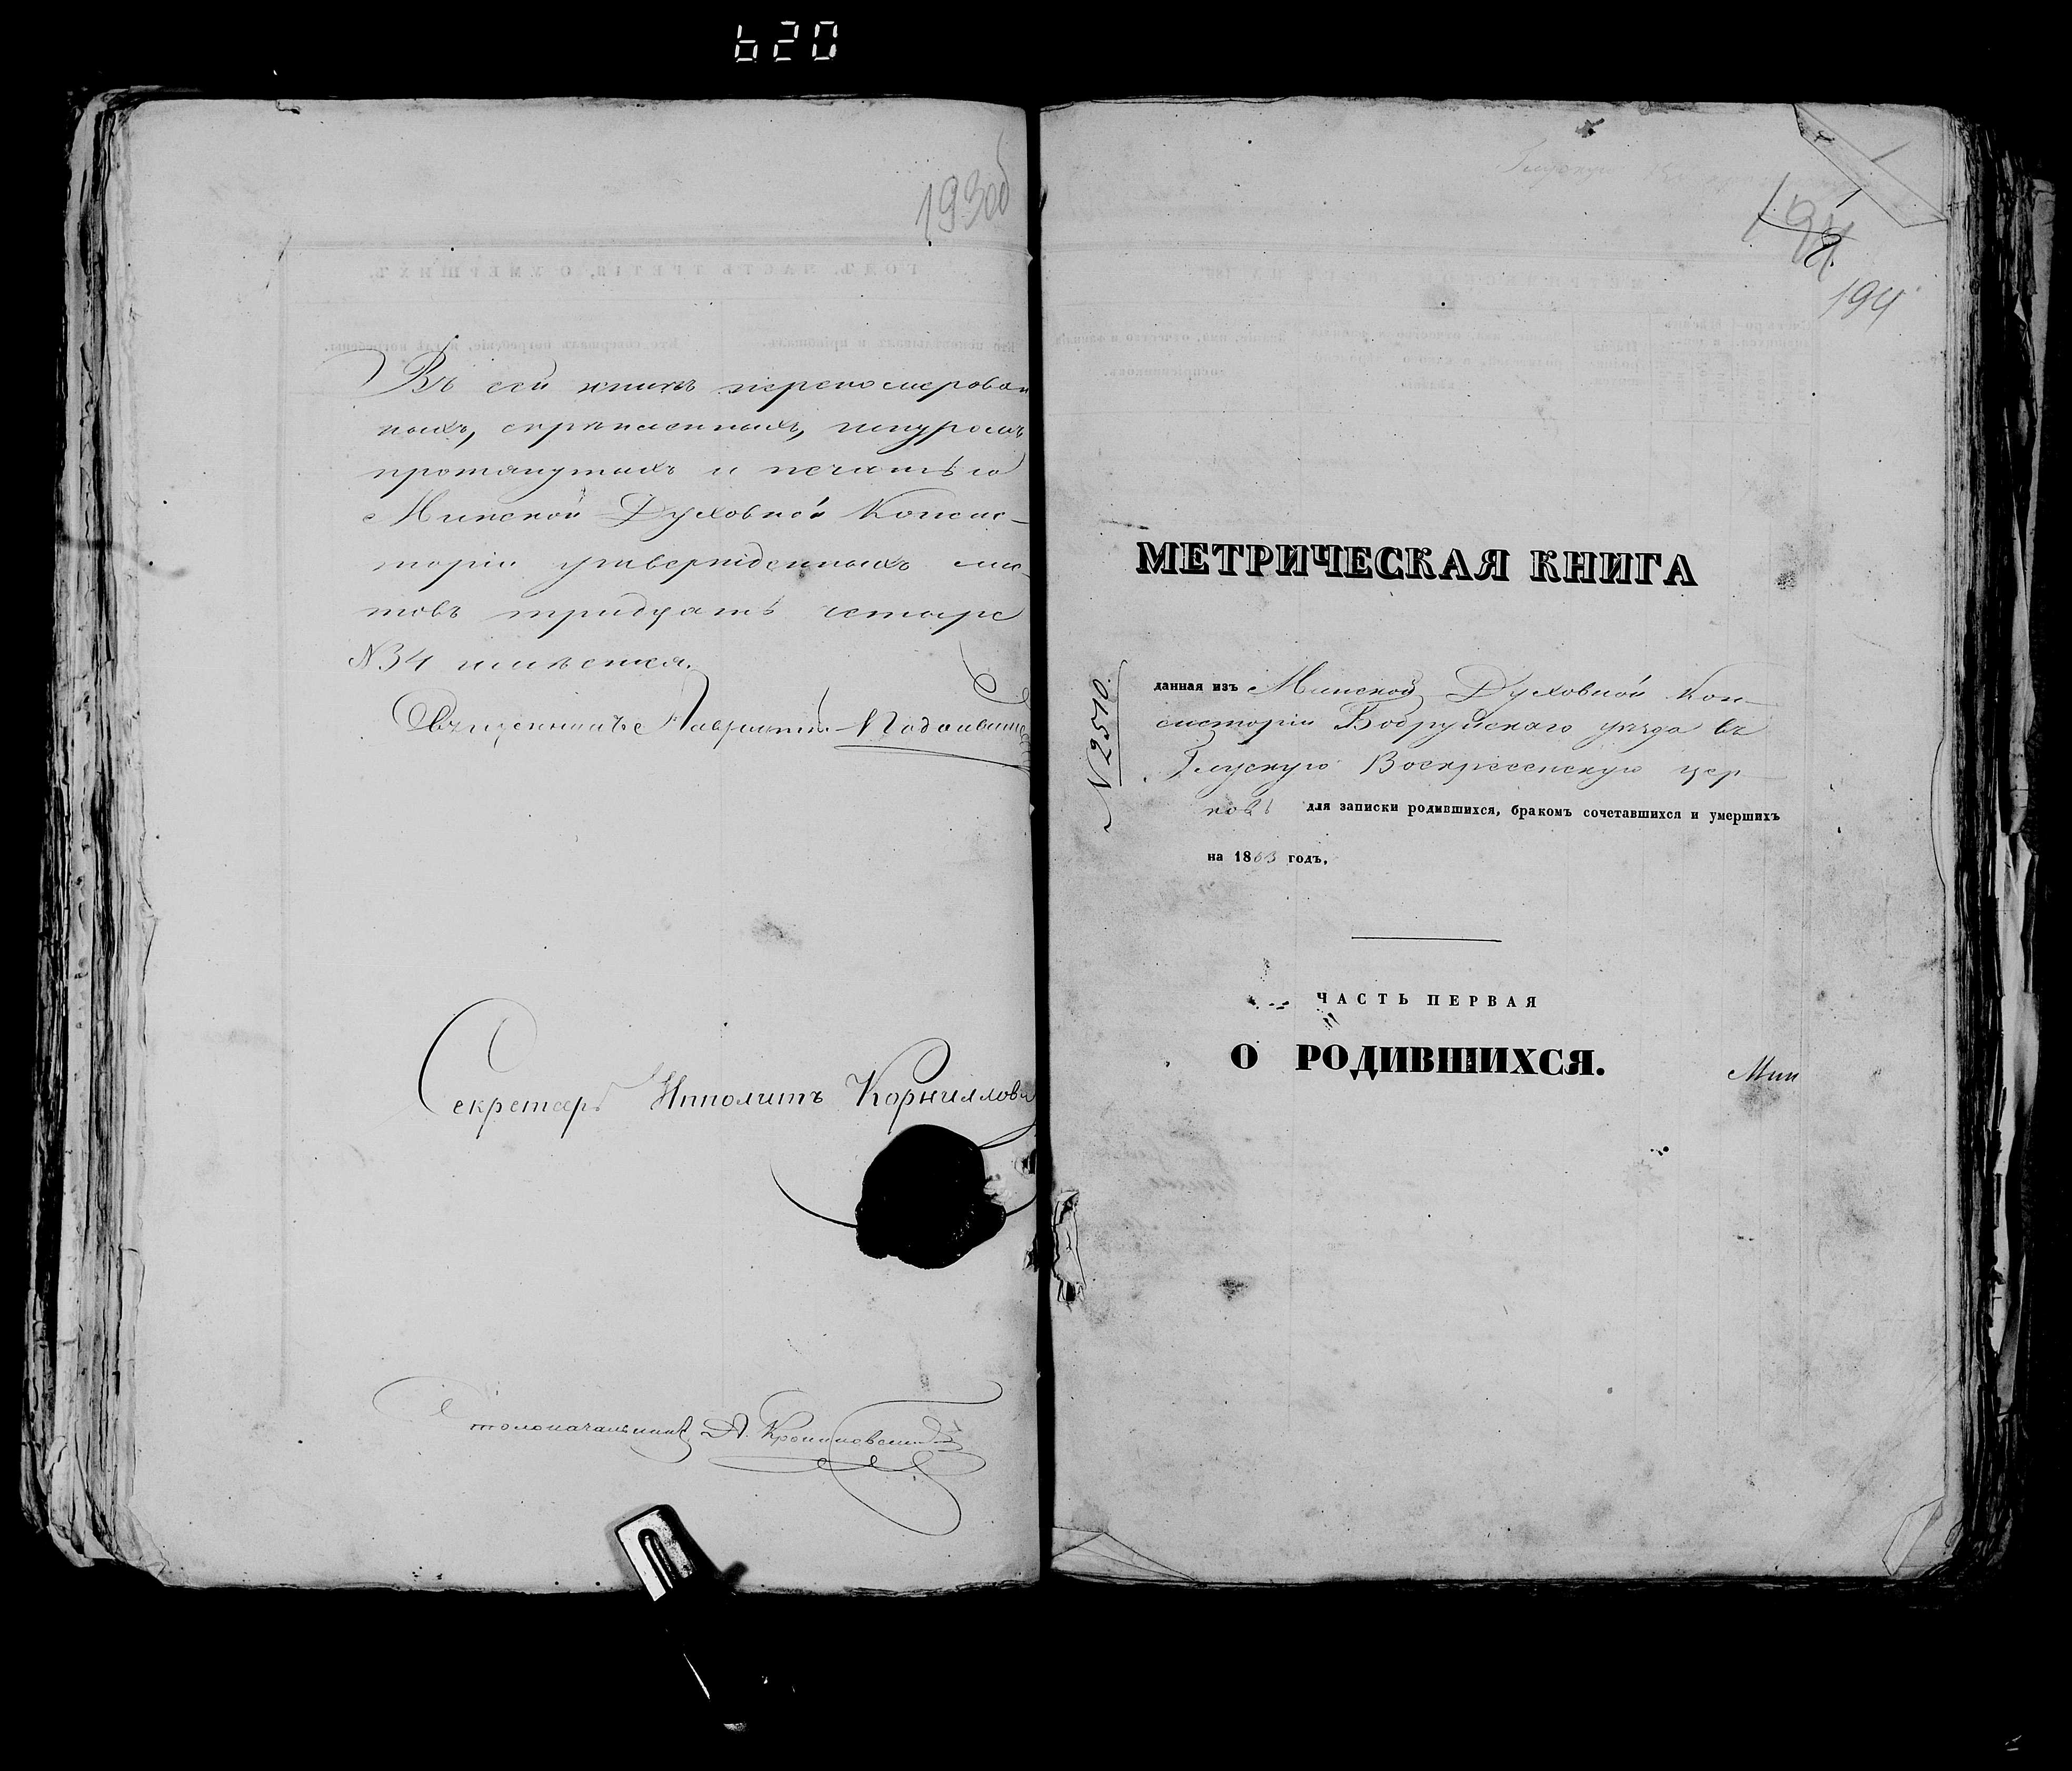 620
193об
Въ сей книгѣ перенумерован
ныхъ, скрѣпленныхъ, шнуромъ
протянутыхъ и печатью
Минской Духовной Консис-
торіи утвержденныхъ лис-
товъ тридцать четыре
№34 имѣется.
Священникъ Лаврентій
Секретарь Ипполитъ Корниллов
Столоначальникъ А.
194
194
МЕТРИЧЕСКАЯ КНИГА
№2510.
данная изъ Минской Духовной Кон-
систоріи Бобруйскаго уѣзда въ
Глускую Воскресенскую цер-
ковь для записки родившихся, бракомъ сочетавшихся и умершихъ
на 1863 годъ.
ЧАСТЬ ПЕРВАЯ
О РОДИВШИХСЯ.
Мин